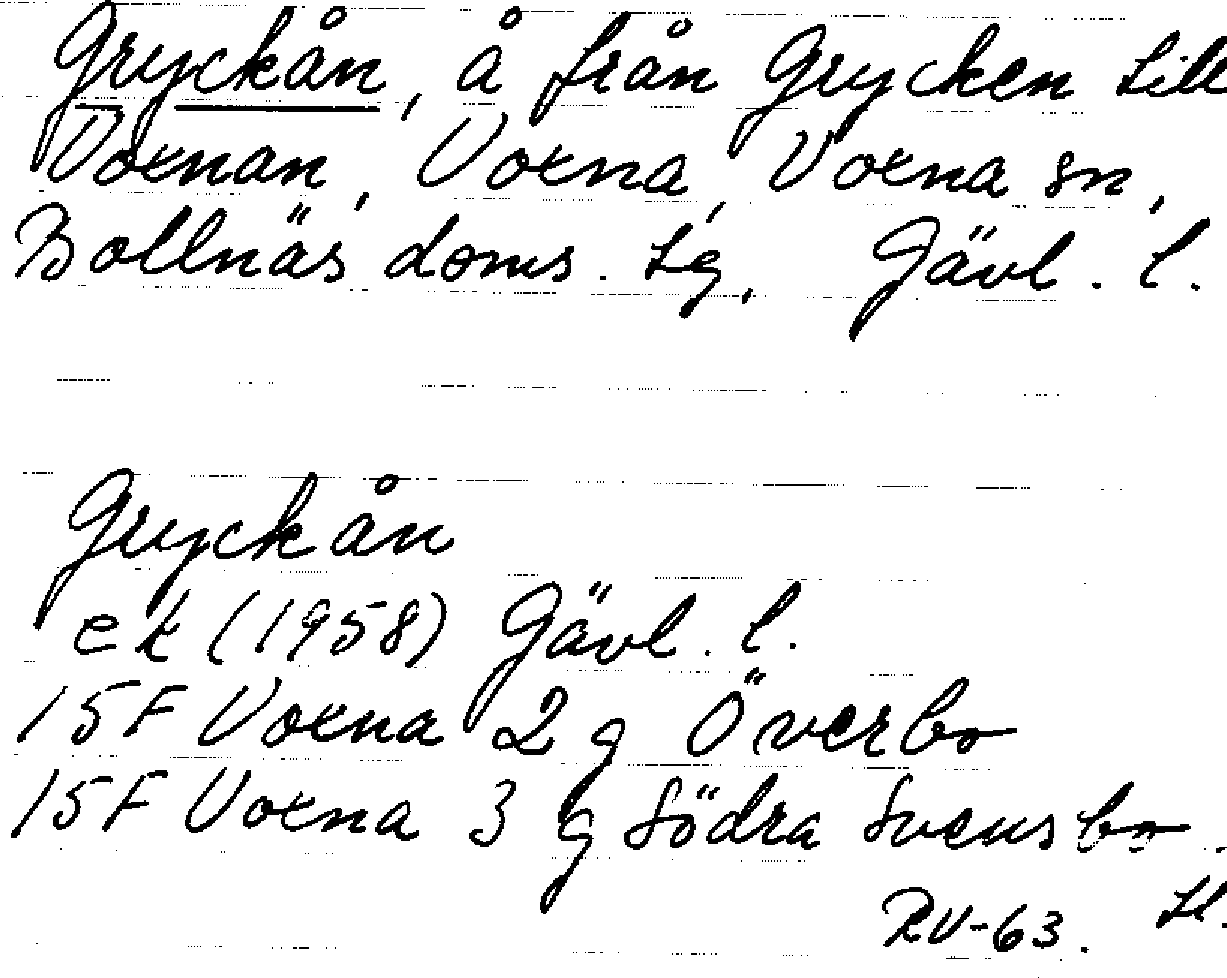 Gryckån, å från Grycken till
Voxnan, Voxna, Voxna sn,
Bollnäs doms. tg, Gävl. l.
Gryckån
ek (1958) Gävl. l.
15F Voxna 2 g Överbo
15F Voxna 3 g Södra Svensbo.
RV-63.